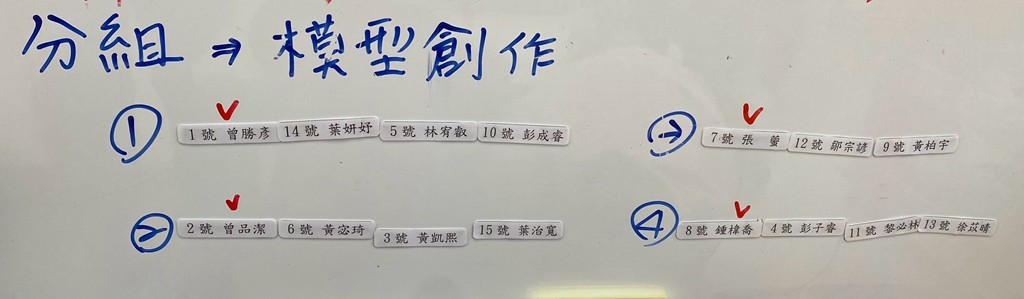 分組 ⇒ 模型創作
① 1號 曾勝彥 14號 葉妍妤 5號 林宥叡 10號 彭成睿
② 2號 曾品潔 6號 黃宓琦 3號 黃凱熙 15號 葉治寬
③ 7號 張 蠒 12號 鄔宗諺 9號 黃柏宇
④ 8號 鍾樟喬 4號 彭子睿 11號 黎必林 13號 徐苡晴